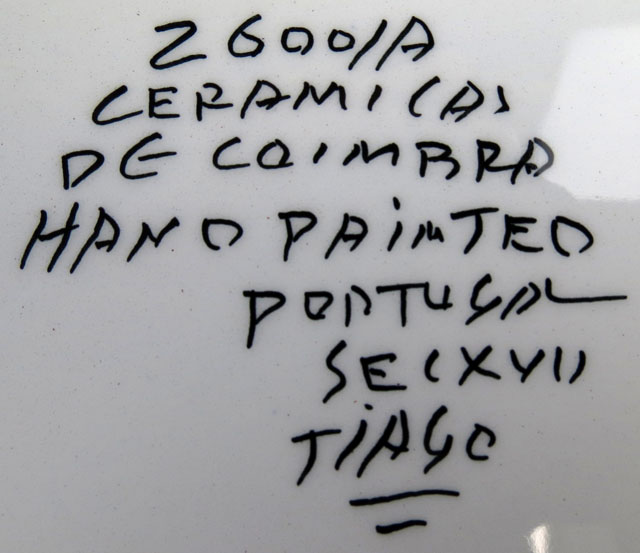 2600/A
CERAMICAS
DE COIMBRA
HAND PAINTED
PORTUGAL
SEC XVII
TIAGO